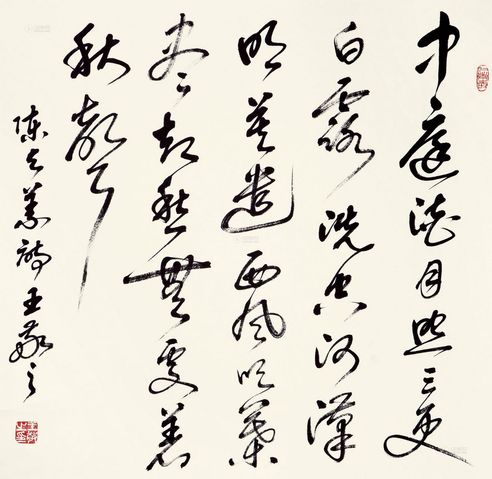 中庭淡月照三更
白露洗空河漢
明莫遣西風吹葉
盡却愁無處著
秋聲
陳与義詩王敬之